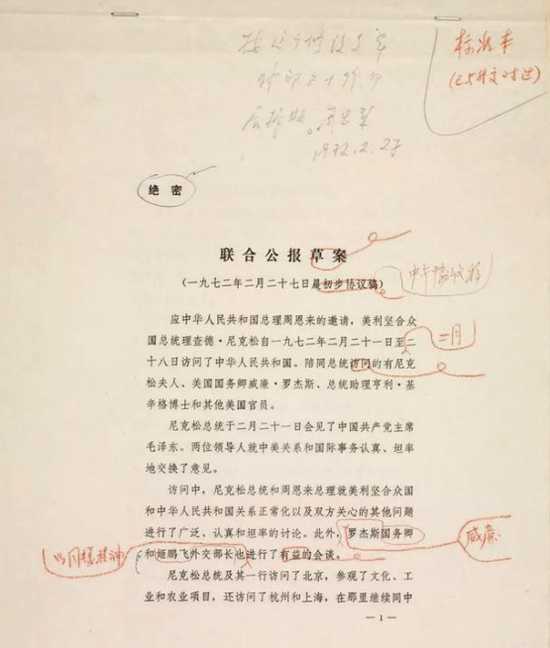 按这个修改草案
铅印二十份,即
公报版。周恩来
1972.2.27
标准本
(已与外文对过)
绝密
联合公报草案
(一九七二年二月二十七日晨初步协议稿)
中午协议稿
应中华人民共和国总理周恩来的邀请,美利坚合众
国总统理查德·尼克松自一九七二年二月二十一日至二
二月
十八日访问了中华人民共和国。陪同总统访问的有尼克
松夫人、美国国务卿威廉·罗杰斯、总统助理亨利·基
辛格博士和其他美国官员。
尼克松总统于二月二十一日会见了中国共产党主席
毛泽东。两位领导人就中美关系和国际事务认真、坦率
地交换了意见。
访问中,尼克松总统和周恩来总理就美利坚合众国
和中华人民共和国关系正常化以及双方关心的其他问题
进行了广泛、认真和坦率的讨论。此外,罗杰斯国务卿
威廉
以同样精神
和姬鹏飞外交部长也进行了有益的会谈。
尼克松总统及其一行访问了北京,参观了文化、工
业和农业项目,还访问了杭州和上海,在那里继续同中
— 1 —